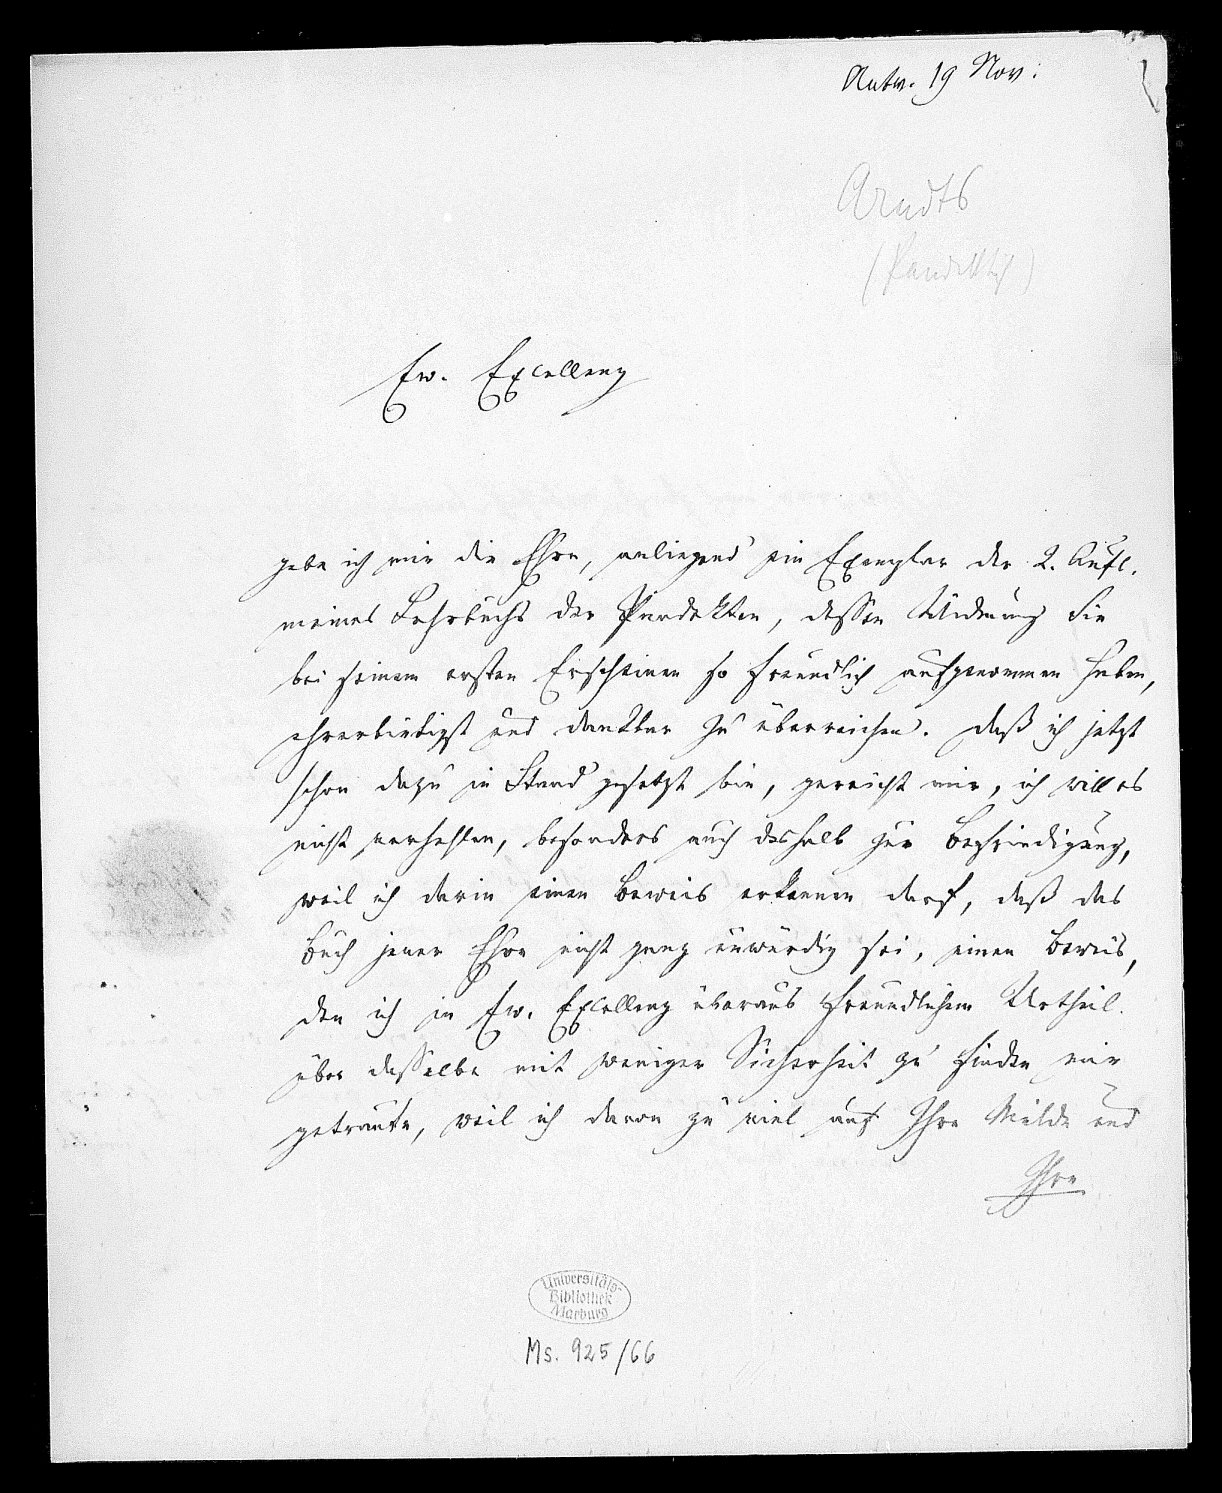 Antw. 19 Nov:
Arndts
(Pandekten)
Ew. Excellenz
gebe ich mir die Ehre, anliegend ein Exemplar der 2. Aufl.
meines Lehrbuchs der Pandekten, dessen Widmung Sie
bei seinem ersten Erscheinen so freundlich aufgenommen haben,
ehrerbietigst und dankbar zu überreichen. Daß ich jetzt
schon dazu in Stand gesetzt bin, gereicht mir, ich will es
nicht verhehlen, besonders auch deshalb zur Befriedigung,
weil ich darin einen Beweis erkennen darf, daß das
Buch jener Ehre nicht ganz unwürdig sei, einen Beweis,
den ich in Ew. Excellenz überaus freundlichem Urtheil
über dasselbe mit weniger Sicherheit zu finden mir
getraute, weil ich davon zu viel auf Ihre Milde und
Ihre
Universitäts-
Bibliothek
Marburg
Ms. 925/66